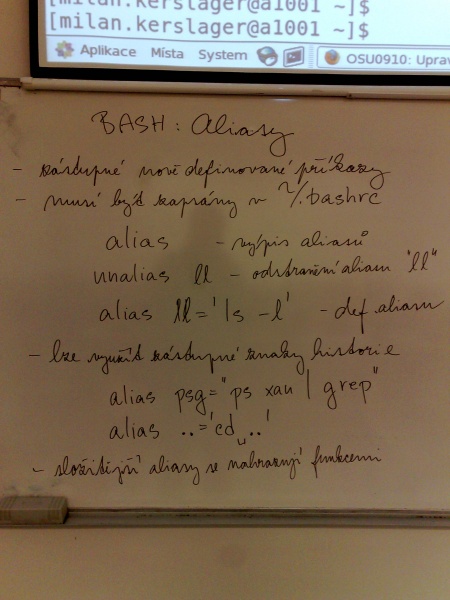 [milan.kerslager@a1001 ~]$
[milan.kerslager@a1001 ~]$
Aplikace Místa Systém OSU0910: Uprav
BASH: Aliasy
- zástupné nově definované příkazy
- musí být zapsány v ~/.bashrc
alias - výpis aliasů
unalias ll - odstranění aliasu "ll"
alias ll='ls -l' - def aliasu
- lze využít zástupné znaky historie
alias psg="ps xau | grep"
alias ..='cd␣..'
- složitější aliasy se nahrazují funkcemi